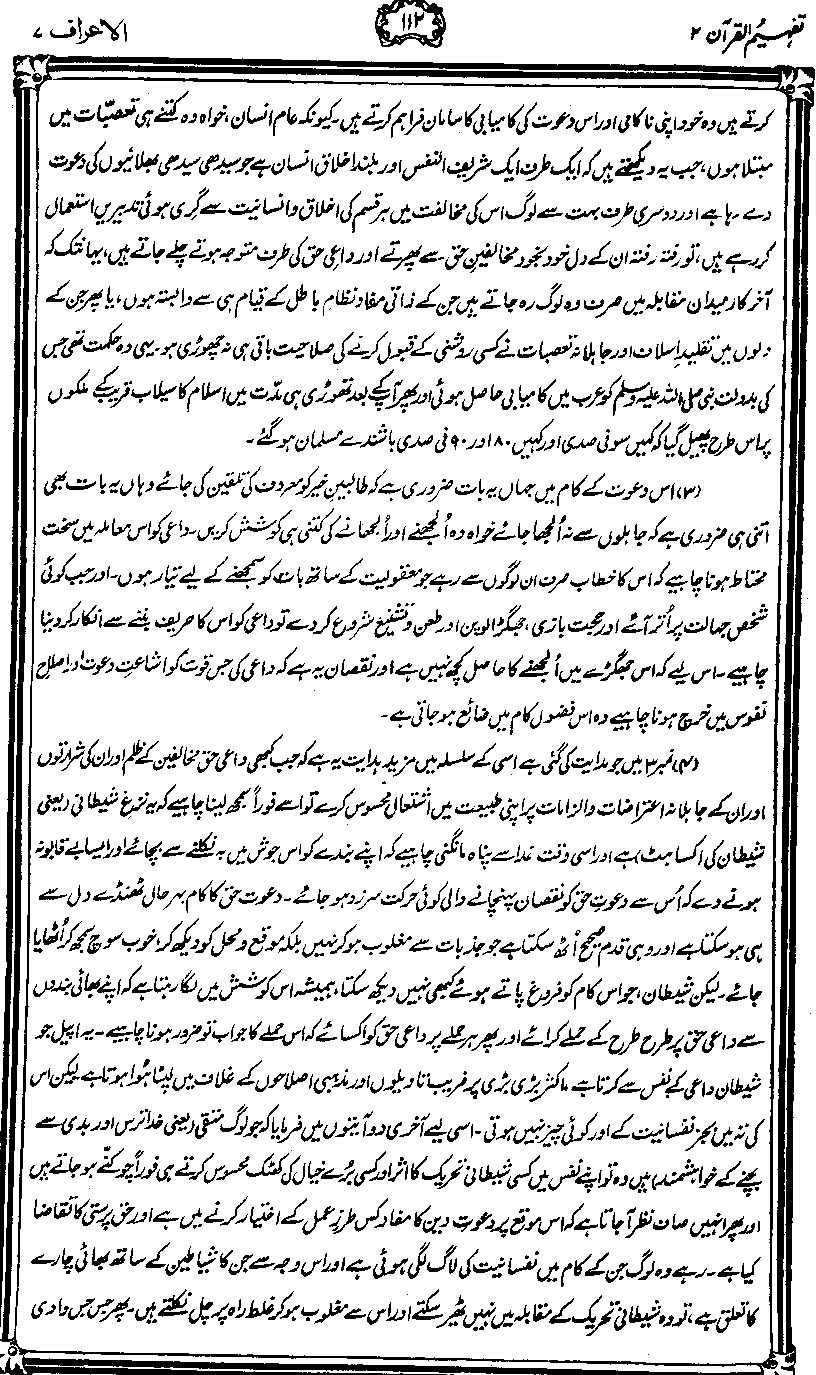 تفہیم القرآن ۲
۱۱۲
الاعراف ۷
کرتے ہیں وہ خود اپنی ناکامی اور اس دعوت کی کامیابی کا سامان فراہم کرتے ہیں۔ کیونکہ عام انسان، خواہ وہ کتنے ہی تعصّبات میں
مبتلا ہوں، جب یہ دیکھتے ہیں کہ ایک طرف ایک شریف النفس اور بلند اخلاق انسان ہے جو سیدھی سیدھی بھلائیوں کی دعوت
دے رہا ہے اور دوسری طرف بہت سے لوگ اس کی مخالفت میں ہر قسم کی اخلاق و انسانیت سے گری ہوئی تدبیریں استعمال
کر رہے ہیں، تو رفتہ رفتہ ان کے دل خود بخود مخالفینِ حق سے پھرتے اور داعیِ حق کی طرف متوجہ ہوتے چلے جاتے ہیں، یہانتک کہ
آخر کار میدان مقابلہ میں صرف وہ لوگ رہ جاتے ہیں جن کے ذاتی مفاد نظامِ باطل کے قیام ہی سے وابستہ ہوں، یا پھر جن کے
دلوں میں تقلیدِ اسلاف اور جاہلانہ تعصبات نے کسی روشنی کے قبول کرنے کی صلاحیت باقی ہی نہ چھوڑی ہو۔ یہی وہ حکمت تھی جس
کی بدولت نبی صلی اللہ علیہ وسلم کو عرب میں کامیابی حاصل ہوئی اور پھر آپ کے بعد تھوڑی ہی مدّت میں اسلام کا سیلاب قریب کے ملکوں
پر اس طرح پھیل گیا کہ کہیں سو فی صدی اور کہیں ۸۰ اور ۹۰ فی صدی باشندے مسلمان ہو گئے۔
(۳) اس دعوت کے کام میں جہاں یہ بات ضروری ہے کہ طالبینِ خیر کو معروف کی تلقین کی جائے وہاں یہ بات بھی
اتنی ہی ضروری ہے کہ جاہلوں سے نہ اُلجھا جائے خواہ وہ اُلجھنے اور اُلجھانے کی کتنی ہی کوشش کریں۔ داعی کو اس معاملہ میں سخت
محتاط ہونا چاہیے کہ اس کا خطاب صرف ان لوگوں سے رہے جو معقولیت کے ساتھ بات کو سمجھنے کے لیے تیار ہوں۔ اور جب کوئی
شخص جہالت پر اُتر آئے اور حجت بازی، جھگڑالوپن اور طعن و تشنیع شروع کر دے تو داعی کو اس کا حریف بننے سے انکار کر دینا
چاہیے۔ اس لیے کہ اس جھگڑے میں اُلجھنے کا حاصل کچھ نہیں ہے اور نقصان یہ ہے کہ داعی کی جس قوت کو اشاعتِ دعوت اور اصلاحِ
نفوس میں خرچ ہونا چاہیے وہ اس فضول کام میں ضائع ہو جاتی ہے۔
(۴) نمبر ۳ میں جو ہدایت کی گئی ہے اسی کے سلسلہ میں مزید ہدایت یہ ہے کہ جب کبھی داعیِ حق مخالفین کے ظلم اور ان کی شرارتوں
اور ان کے جاہلانہ اعتراضات و الزامات پر اپنی طبیعت میں اشتعال محسوس کرے تو اسے فوراً سمجھ لینا چاہیے کہ یہ نزغِ شیطانی (یعنی
شیطان کی اکساہٹ) ہے اور اسی وقت خدا سے پناہ مانگنی چاہیے کہ اپنے بندے کو اس جوش میں بہ نکلنے سے بچائے اور ایسا بے قابو نہ
ہونے دے کہ اُس سے دعوتِ حق کو نقصان پہنچانے والی کوئی حرکت سرزد ہو جائے۔ دعوتِ حق کا کام بہر حال ٹھنڈے دل سے
ہی ہو سکتا ہے اور وہی قدم صحیح اُٹھ سکتا ہے جو جذبات سے مغلوب ہو کر نہیں بلکہ موقع و محل کو دیکھ کر، خوب سوچ سمجھ کر اُٹھایا
جائے۔ لیکن شیطان، جو اس کام کو فروغ پاتے ہوئے کبھی نہیں دیکھ سکتا، ہمیشہ اس کوشش میں لگا رہتا ہے کہ اپنے بھائی بندوں
سے داعیِ حق پر طرح طرح کے حملے کرائے اور پھر ہر حملے پر داعیِ حق کو اکسائے کہ اس حملے کا جواب تو ضرور ہونا چاہیے۔ یہ اپیل جو
شیطان داعی کے نفس سے کرتا ہے، اکثر بڑی بڑی پر فریب تاویلوں اور مذہبی اصلاحوں کے غلاف میں لپٹا ہُوا ہوتا ہے لیکن اس
کی تہ میں بجز نفسانیت کے اور کوئی چیز نہیں ہوتی۔ اسی لیے آخری دو آیتوں میں فرمایا کہ جو لوگ متقی (یعنی خدا ترس اور بدی سے
بچنے کے خواہشمند) ہیں وہ تو اپنے نفس میں کسی شیطانی تحریک کا اثر اور کسی بُرے خیال کی کھٹک محسوس کرتے ہی فوراً چوکنّے ہو جاتے ہیں
اور پھر انہیں صاف نظر آجاتا ہے کہ اس موقع پر دعوتِ دین کا مفاد کس طرزِ عمل کے اختیار کرنے میں ہے اور حق پرستی کا تقاضا
کیا ہے۔ رہے وہ لوگ جن کے کام میں نفسانیت کی لاگ لگی ہوئی ہے اور اس وجہ سے جن کا شیاطین کے ساتھ بھائی چارے
کا تعلق ہے، تو وہ شیطانی تحریک کے مقابلہ میں نہیں ٹھیر سکتے اور اس سے مغلوب ہو کر غلط راہ پر چل نکلتے ہیں۔ پھر جس جس وادی